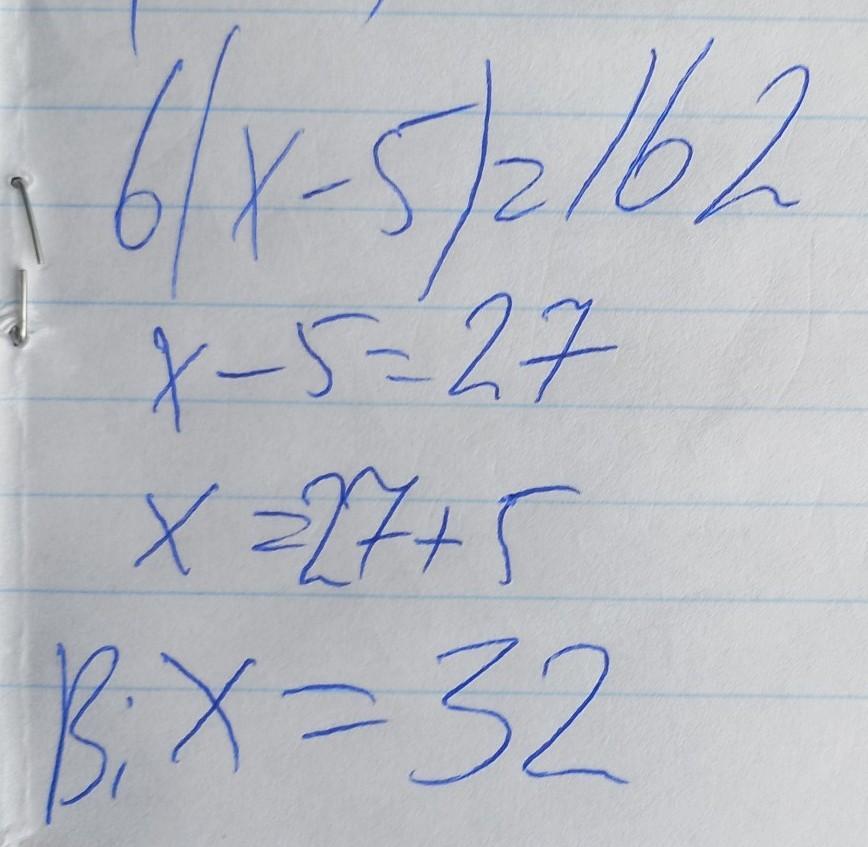 6(x-5)=162
x-5=27
x=27+5
В; x=32